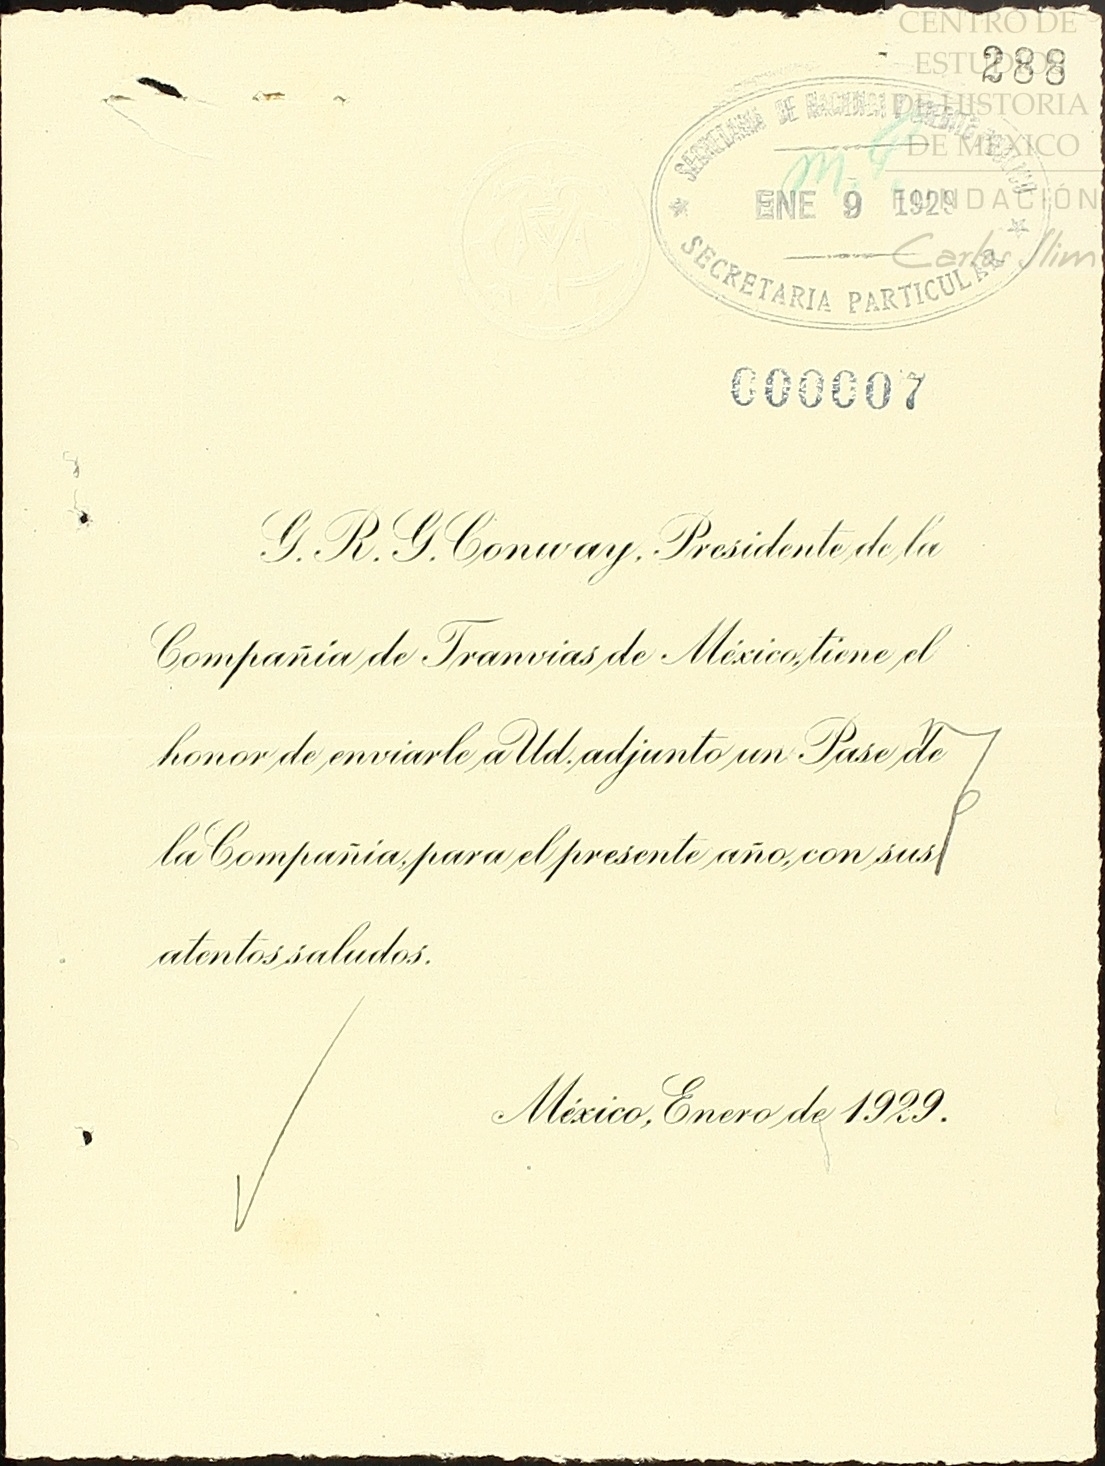 CENTRO DE
ESTUDIOS
DE HISTORIA
DE MÉXICO
FUNDACIÓN
Carlos Slim
288
SECRETARIA DE HACIENDA Y CREDITO PUBLICO
ENE 9 1929
SECRETARIA PARTICULAR
000007
G. R. G. Conway, Presidente de la
Compañía de Tranvias de México, tiene el
honor de enviarle a Ud. adjunto un Pase de
la Compañía, para el presente año, con sus
atentos saludos.
México, Enero de 1929.